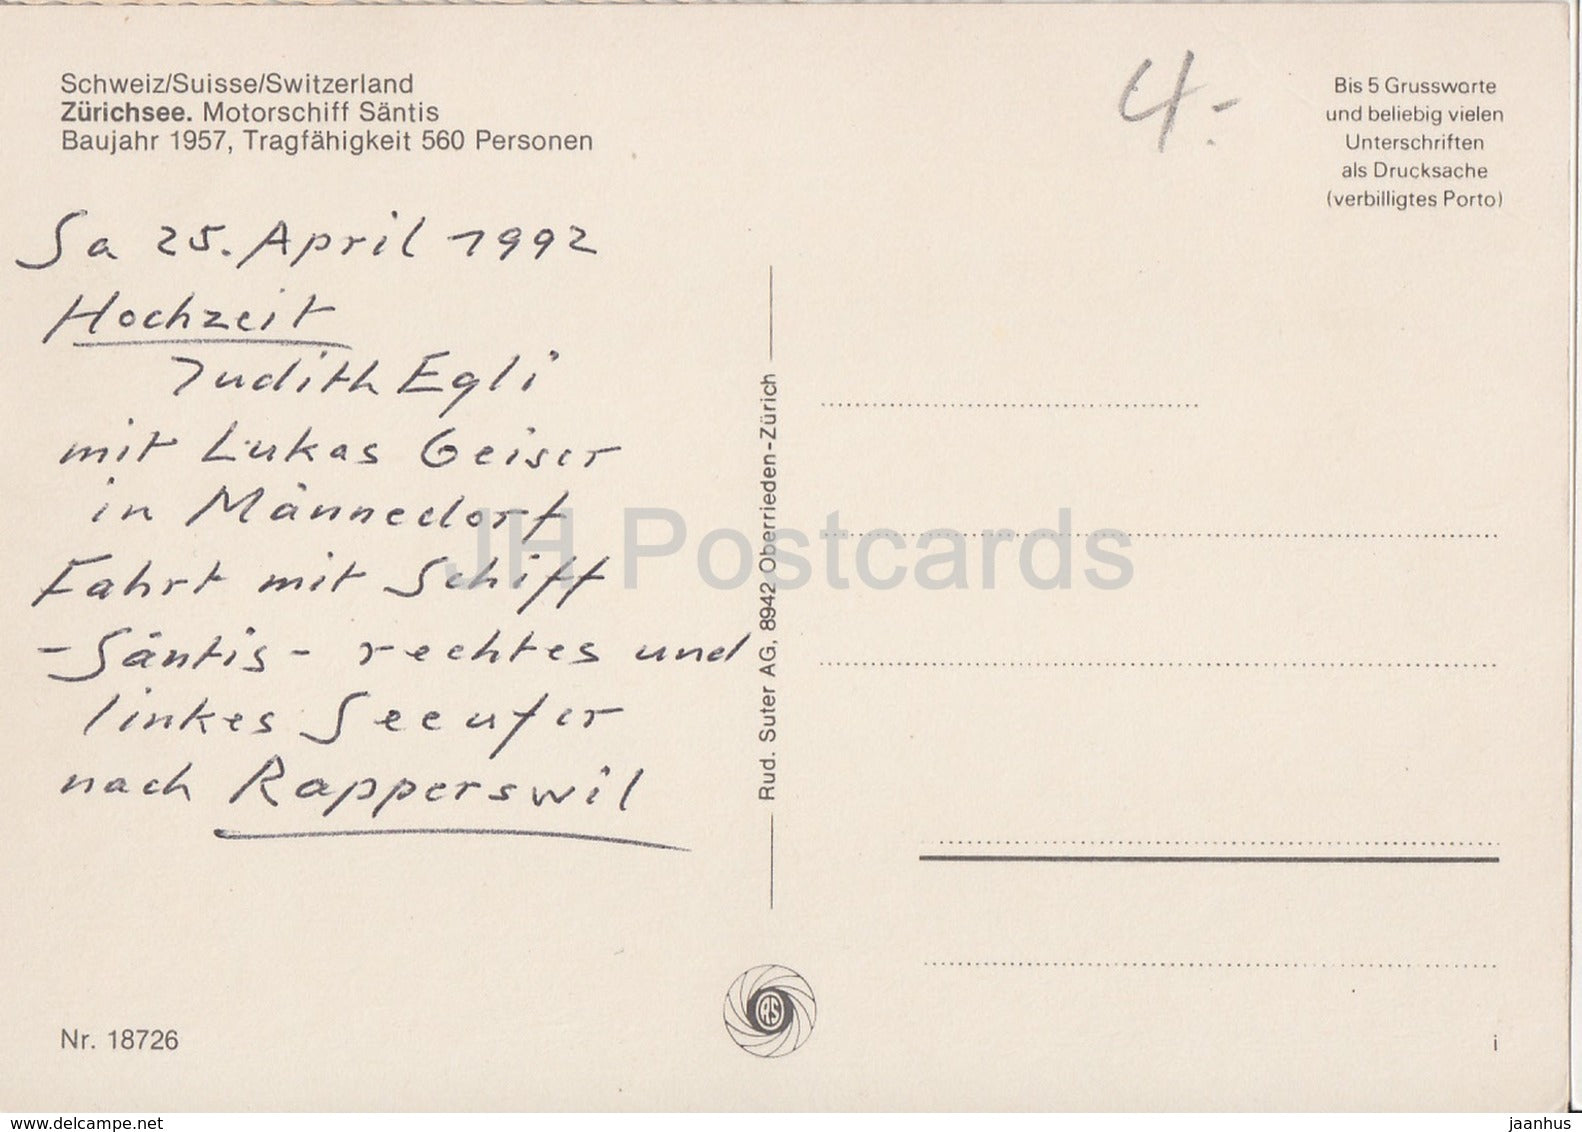 Schweiz/Suisse/Switzerland
Zürichsee. Motorschiff Säntis
Baujahr 1957, Tragfähigkeit 560 Personen
4.-
Bis 5 Grussworte
und beliebig vielen
Unterschriften
als Drucksache
(verbilligtes Porto)
Sa 25. April 1992
Hochzeit
Judith Egli
mit Lukas Geiser
in Männedorf
Fahrt mit Schiff
- Säntis - rechtes und
linkes Seeufer
nach Rapperswil
Rud. Suter AG, 8942 Oberrieden-Zürich
JH Postcards
RS
Nr. 18726
i
www.delcampe.net
jaanhus